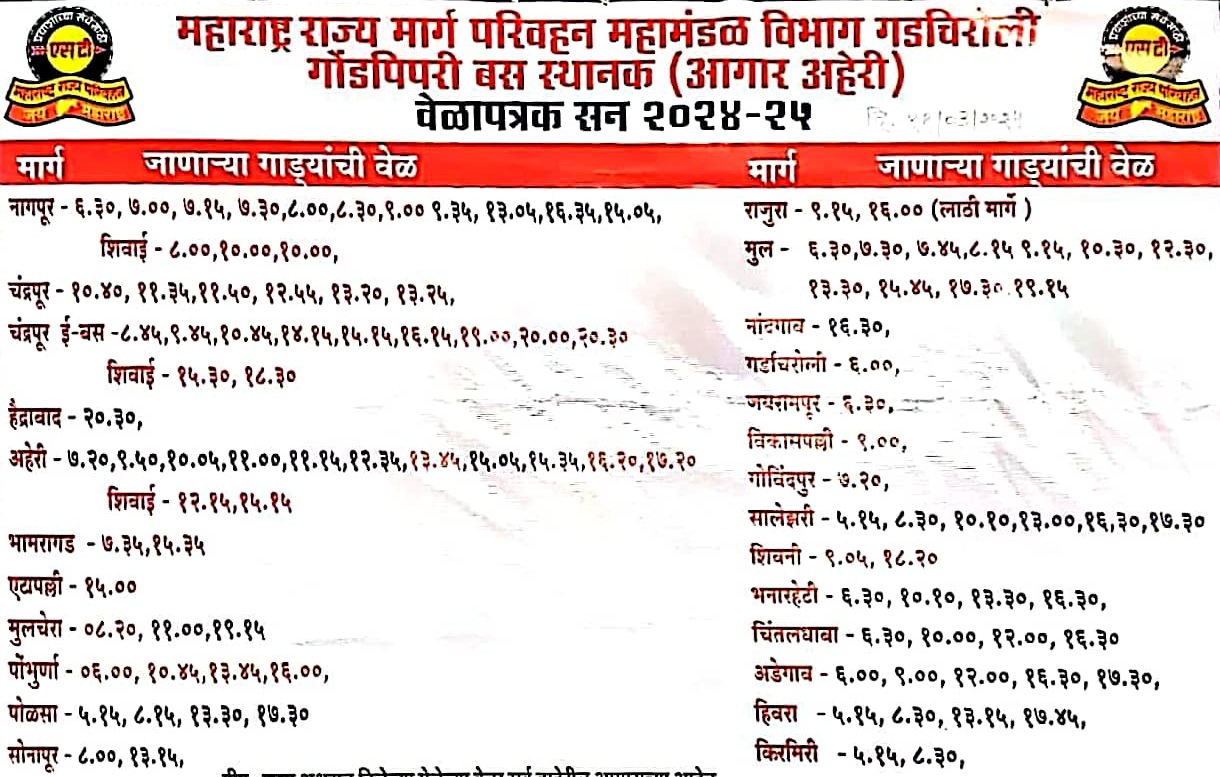 महाराष्ट्र राज्य मार्ग परिवहन महामंडळ विभाग गडचिरोली
गोंडपिपरी बस स्थानक (आगार अहेरी)
वेळापत्रक सन २०२४-२५
एसटी
महाराष्ट्र राज्य परिवहन
जय महाराष्ट्र
एसटी
महाराष्ट्र राज्य परिवहन
जय महाराष्ट्र
मार्ग जाणाऱ्या गाड्यांची वेळ
नागपूर - ६.३०, ७.००, ७.१५, ७.३०,८.००,८.३०,९.०० ९.३५, १३.०५,१६.३५,१५.०५,
शिवाई - ८.००,१०.००,१०.००,
चंद्रपूर - १०.४०, ११.३५,११.५०, १२.५५, १३.२०, १३.२५,
चंद्रपूर ई-बस -८.४५,९.४५,१०.४५,१४.१५,१५.१५,१६.१५,१९.००,२०.००,२०.३०
शिवाई - १५.३०, १८.३०
हैद्राबाद - २०.३०,
अहेरी - ७.२०,९.५०,१०.०५,११.००,११.१५,१२.३५,१३.४५,१५.०५,१५.३५,१६.२०,१७.२०
शिवाई - १२.१५,१५.१५
भामरागड - ७.३५,१५.३५
एटापल्ली - १५.००
मुलचेरा - ०८.२०, ११.००,१९.१५
पोंभुर्णा - ०६.००, १०.४५,१३.४५,१६.००,
पोळसा - ५.१५, ८.१५, १३.३०, १७.३०
सोनापूर - ८.००, १३.१५,
मार्ग जाणाऱ्या गाड्यांची वेळ
राजुरा - ९.१५, १६.०० (लाठी मार्गे )
मुल - ६.३०,७.३०, ७.४५,८.१५ ९.१५, १०.३०, १२.३०,
१३.३०, १५.४५, १७.३०.१९.१५
नांदगाव - १६.३०,
गडचिरोली - ६.००,
जयरामपूर - ६.३०,
विकासपल्ली - ९.००,
गोविंदपुर - ७.२०,
सालेझरी - ५.१५, ८.३०, १०.१०,१३.००,१६,३०,१७.३०
शिवनी - ९.०५, १८.२०
भनारहेटी - ६.३०, १०.१०, १३.३०, १६.३०,
चिंतलधाबा - ६.३०, १०.००, १२.००, १६.३०
अडेगाव - ६.००, ९.००, १२.००, १६.३०, १७.३०,
हिवरा - ५.१५, ८.३०, १३.१५, १७.४५,
किरमिरी - ५.१५, ८.३०,